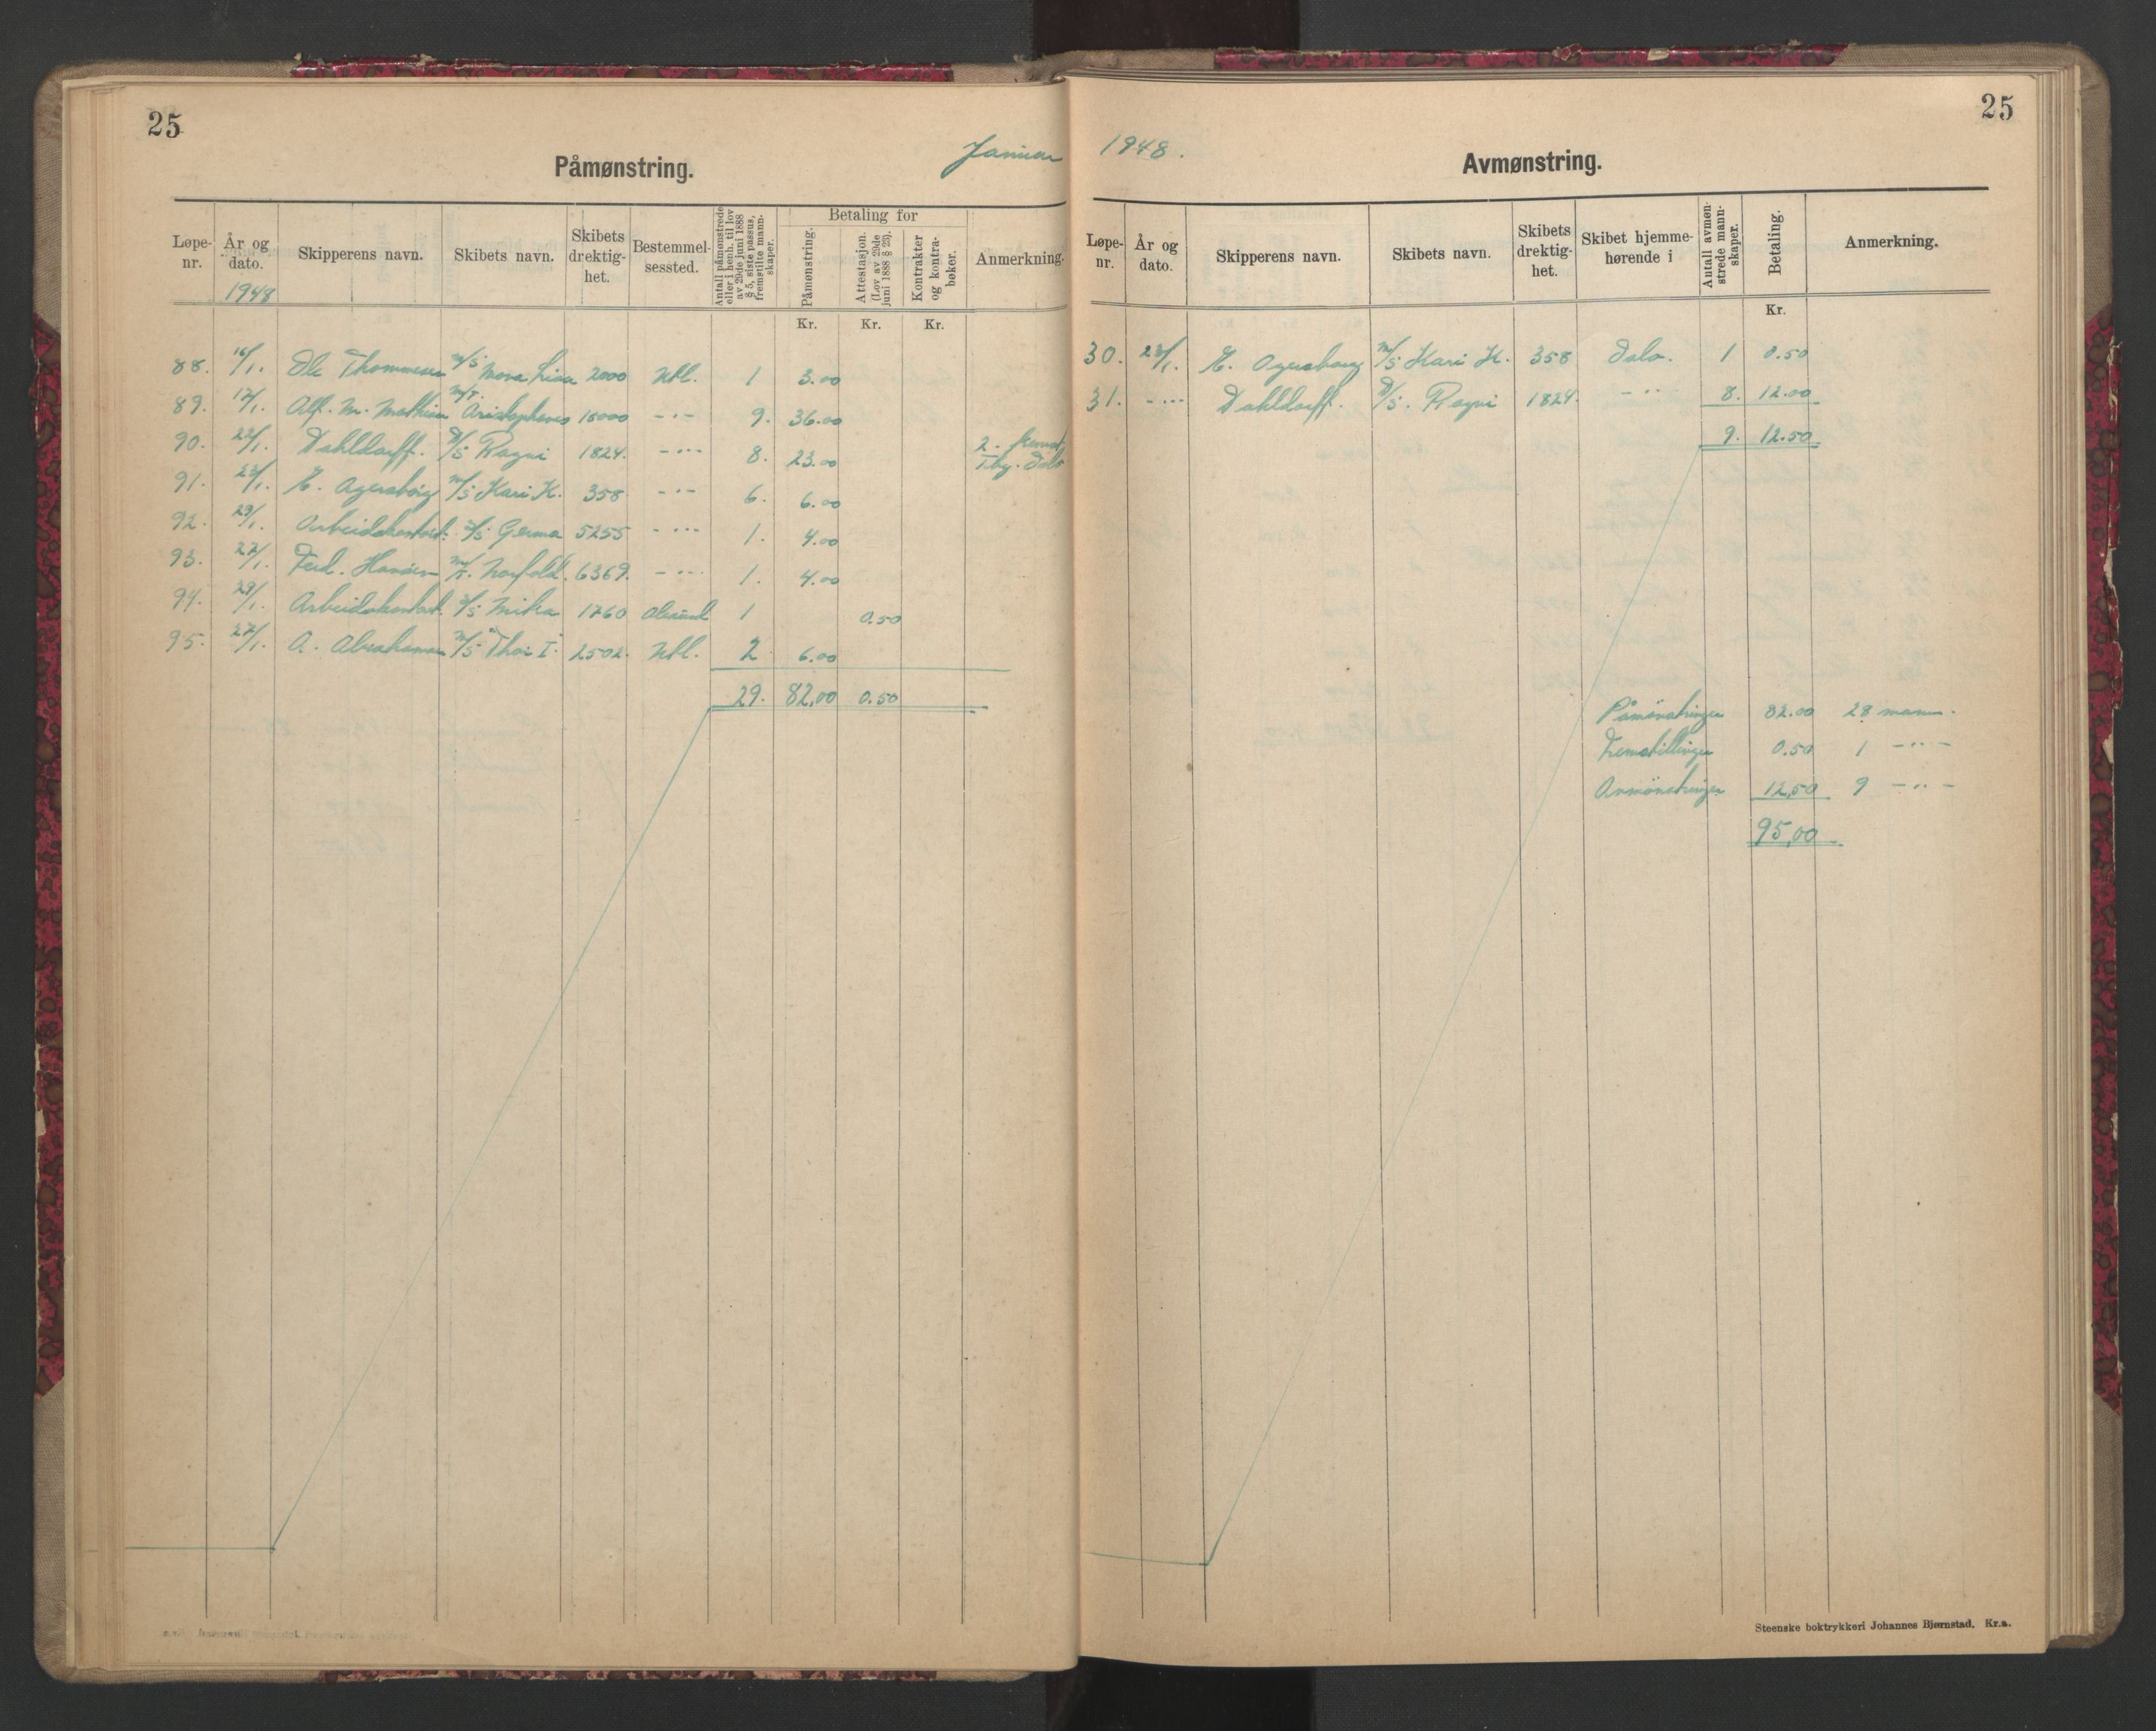 25
Januar
Påmønstring.
Løpe-nr.
År og dato.
1948
Skipperens navn.
Skibets navn.
Skibets drektig-het.
Bestemmel-sessted.
Antall påmønstrede eller i henh. til lov av 29de juni 1888 § 5, siste passus, fremstilte mann-skaper.
Betaling for
Påmønstring.
Attestasjon. (Lov av 29de juni 1888 § 23).
Kontrakter og kontra-bøker.
Anmerkning.
Kr. Kr. Kr.
88. 16/1. Ole Thommesen M/S Mona Lisa 2000 Utl. 1 3.00
89. 17/1. Alf. M. Mathisen M/T. Aristophanes 15000 -"- 9. 36.00
90. 22/1. Dahldorff. D/S Ragni 1824. -"- 8. 23.00 2.
91. 23/1. E. Agersborg M/S Kari K. 358 -"- 6. 6.00
92. 23/1. Arbeidskontoret. Germa 5255 -"- 1. 4.00
93. 27/1. Ferd. Hansen M/T. Norfold. 6369. -"- 1. 4.00
94. 29/1. Arbeidskontoret. Mika 1760 1 0.50
95. 27/1. A. Abrahamsen M/S "Thor I" 2502. Utl. 2 6.00
29. 82,00 0.50
25
1948.
Avmønstring.
Løpe-nr.
År og dato.
Skipperens navn.
Skibets navn.
Skibets drektig-het.
Skibet hjemme-hørende i
Antall avmøn-strede mann-skaper.
Betaling.
Anmerkning.
Kr.
30. 23/1. E. Agersborg M/S Kari K. 358 Oslo. 1 0.50
31. -"- Dahldorff. D/S. Ragni 1824. -"- 8. 12.00
9. 12.50
Påmönstringer 82.00 28 mann.
Fremstillinger 0.50 1 -"-
Avmönstringer 12,50 9 -"-
95,00
Steenske boktrykkeri Johannes Bjørnstad. Kr.a.